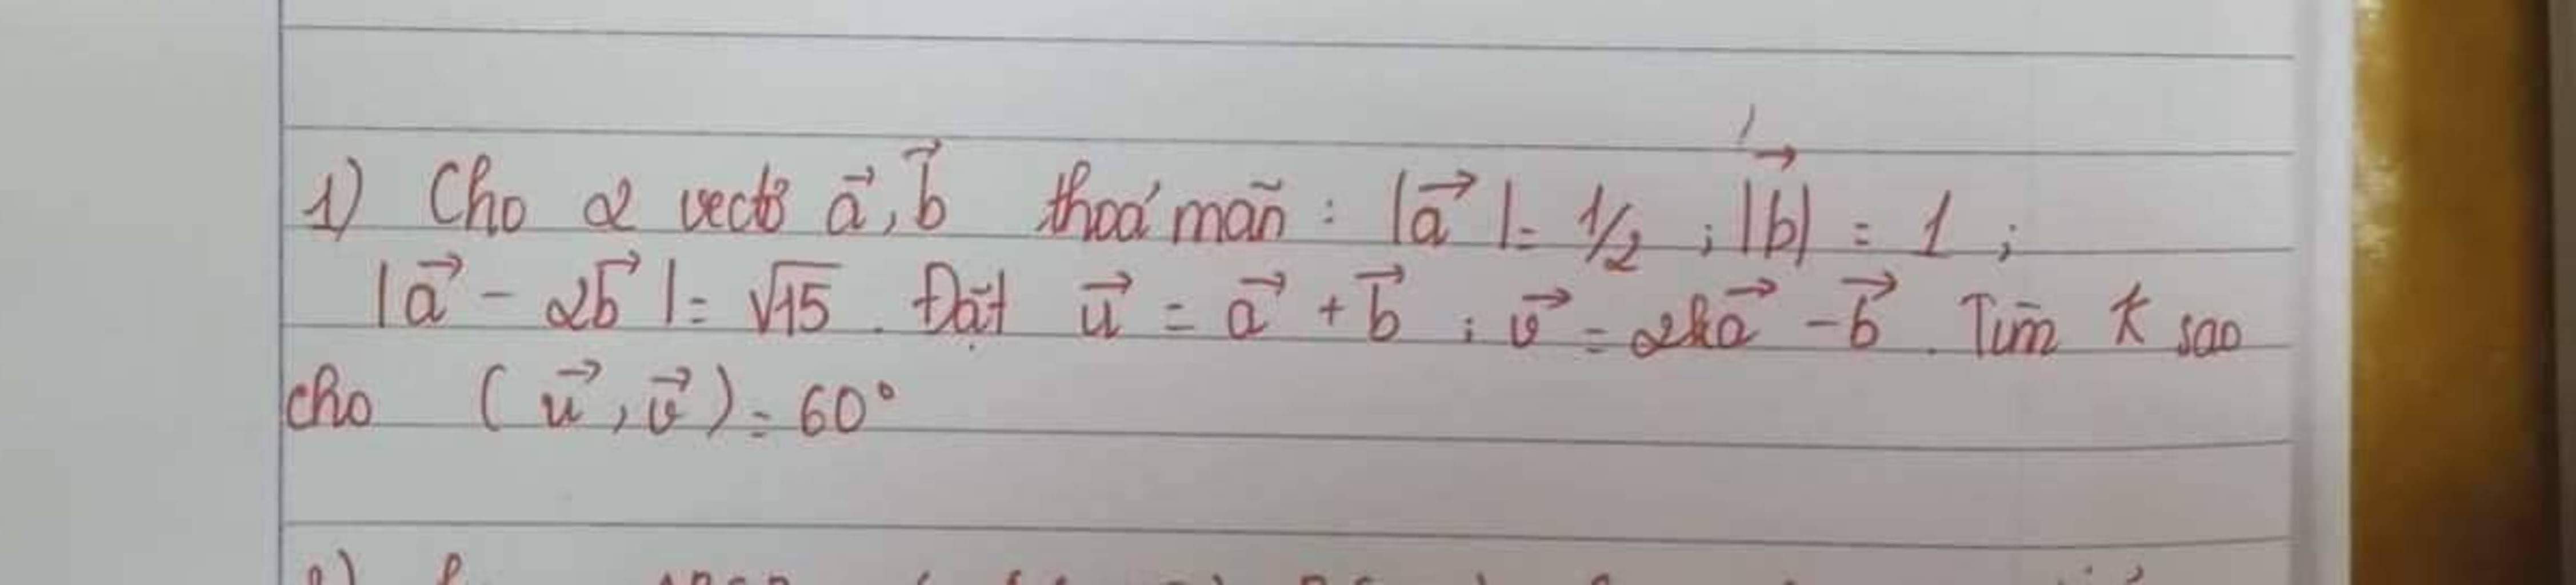 1) Cho 2 vectơ \vec{a}, \vec{b} thoả mãn : |\vec{a}| = 1/2 ; |\vec{b}| = 1 ;
|\vec{a} - 2\vec{b}| = √15 . Đặt \vec{u} = \vec{a} + \vec{b} ; \vec{v} = 2k\vec{a} - \vec{b} . Tìm k sao
cho (\vec{u}, \vec{v}) = 60°